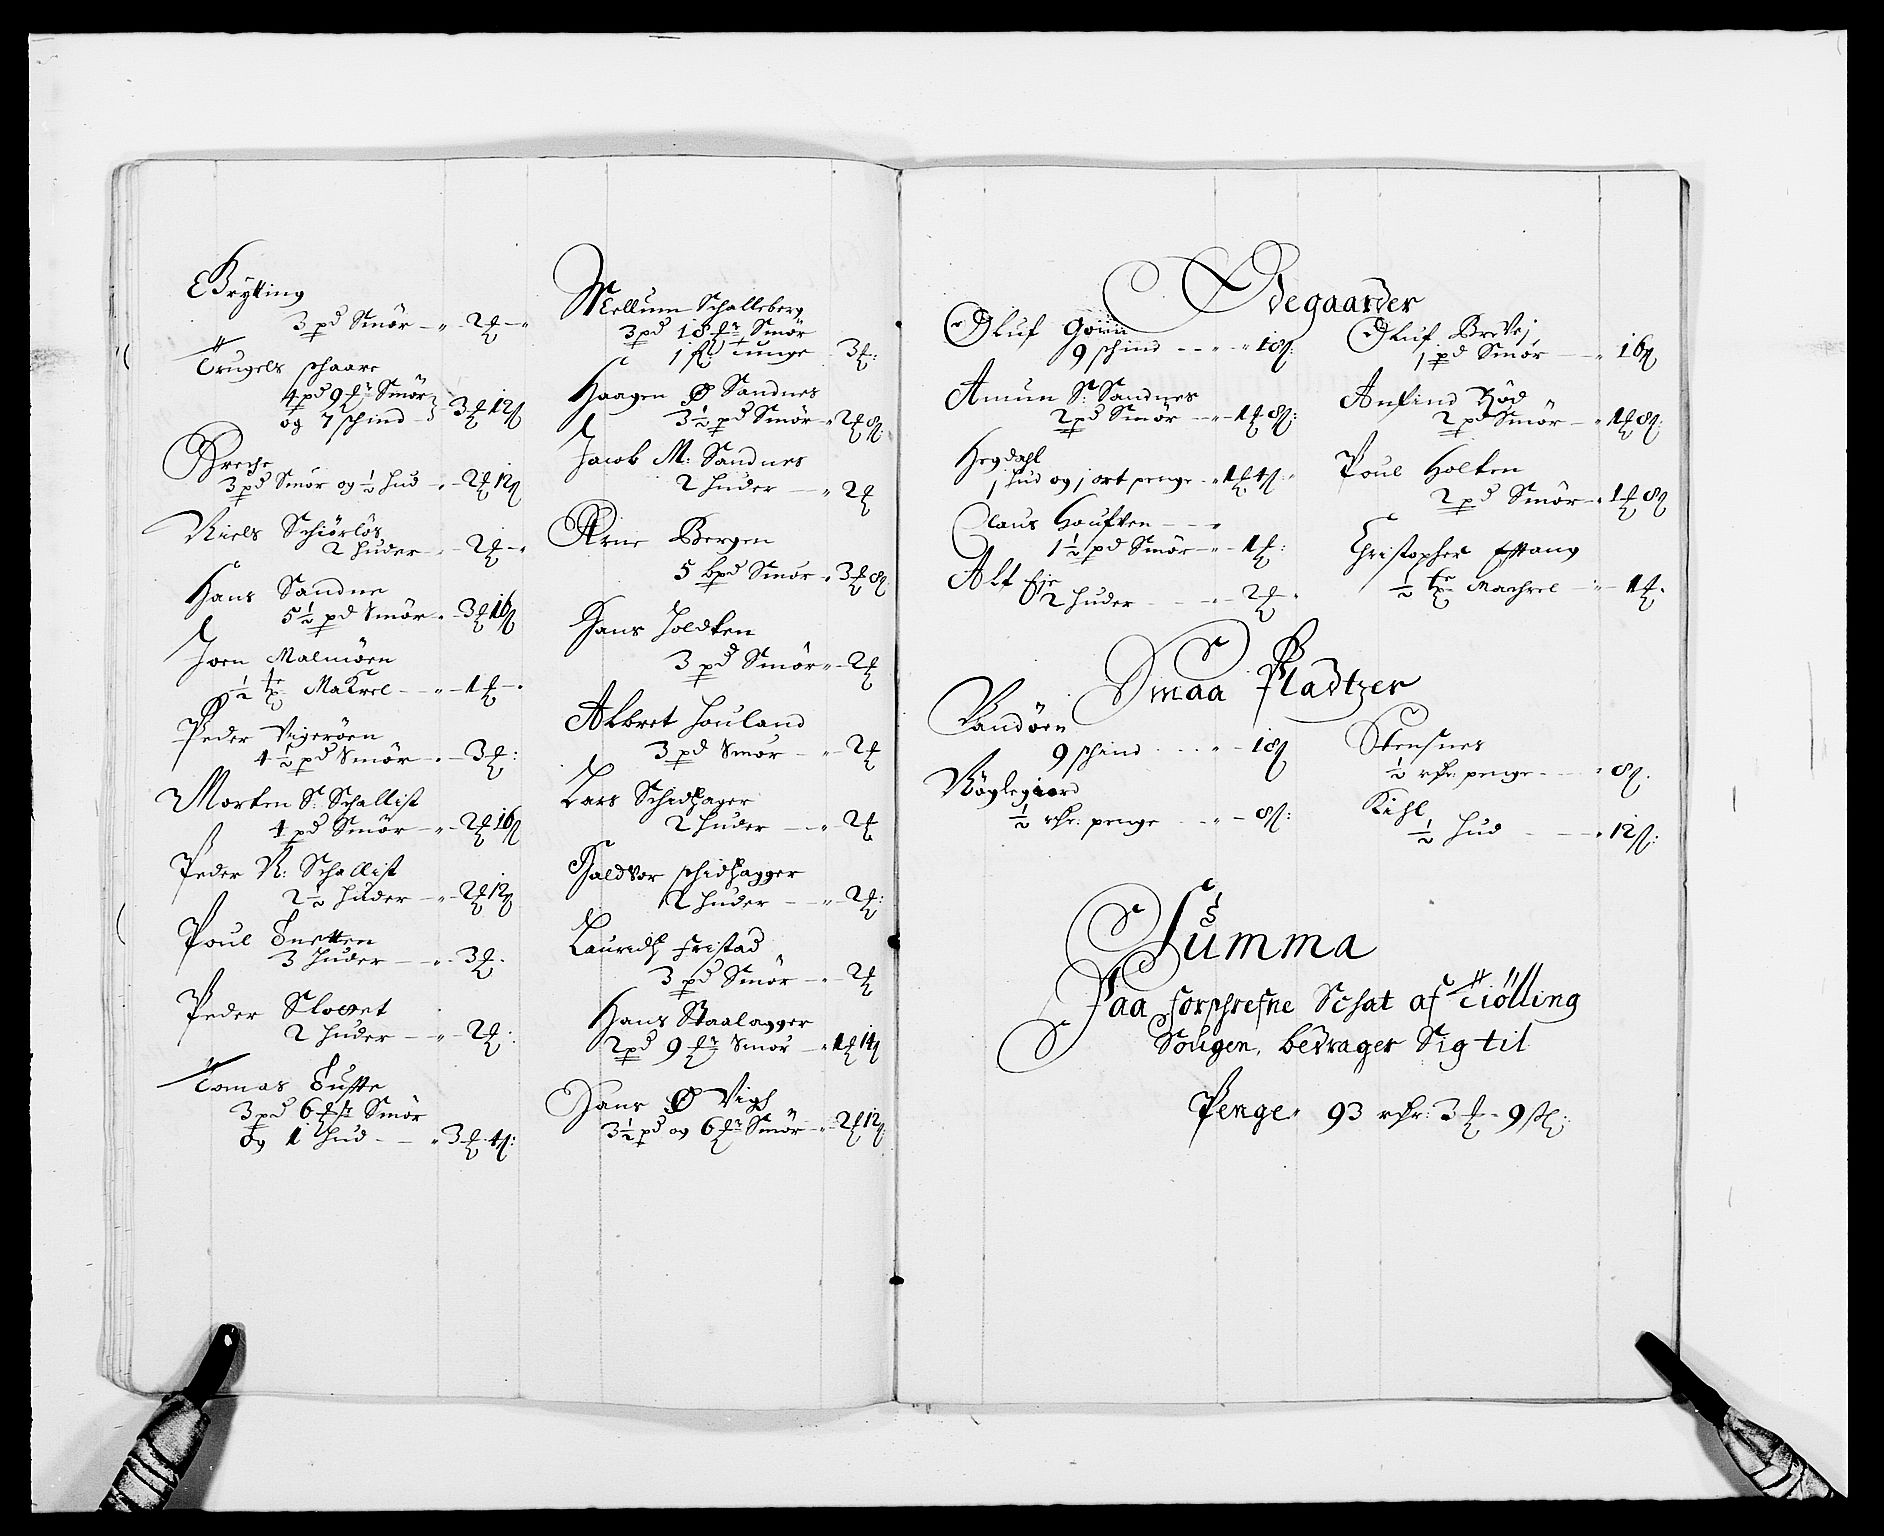 Brytting
3 pd Smör — „ — 2 ₰ — „
Trugels schaare
4 pd 9 ₰r Smör
og 7 schind — 3 ₰ 12 ß
Breche
3 pd Smör og ½ hud — „ — 2 ₰ 12 ß
Niels Schiörlös
2 huder — „ — 2 ₰ — „
Hans Sandne
5 ½ pd Smör — „ — 3 ₰ 16 ß
Joen Malmöen
½ tr Makrel — „ — 1 ₰ — „
Peder Vigeröen
4 ½ pd Smör — „ — 3 ₰ :
Morten S: Schallist
4 pd Smör — „ — 2 ₰ 16 ß
Peder N: Schallist
2 ½ huder — „ — 2 ₰ 12 ß
Poul
3 huder — „ — 3 ₰ .
Peder
2 huder — „ — 2 ₰ :
Tomas Tuffte
3 pd 6 ₰r Smör
og 1 hud — „ 3 ₰ 4 ß :
Mellum Schalleberg
3 pd 18 ₰r Smör
1 tunge 3 ₰ :
Haagen Ø Sandnes
3 ½ pd Smör — „ 2 ₰ 8 ß
Jacob M: Sandnes
2 huder — „ 2 ₰
Arne Bergen
5 bpd Smör „ 3 ₰ 8 ß
Hans Holdten
3 pd Smör „ — 2 ₰
Albret Houland
3 pd Smör — „ — 2 ₰
Lars Schidhager
2 huder — „ — 2 ₰
Haldvor schidhagger
2 huder — „ — 2 ₰ :
Lauridh Fristad
3 pd Smör — „ — 2 ₰
Hans Staalagger
2 pd 9 ₰r Smör — „ 1 ₰ 14 ß
Hans Ø Vigh
3 ½ pd og 6 ₰r Smör — „ — 2 ₰ 12 ß
Ødegaarder
Oluf
9 schind — „ „ 18 ß :
Amun S: Sandnes
2 pd Smör — „ — 1 ₰ 8 ß :
Hegdahl
1 hud og 1 ort penge „ 1 ₰ 4 ß : „
Claus
1 ½ pd Smör — „ — 1 ₰ :
Alf Eje
2 huder — „ — 2 ₰ „
Oluf Brevej
1 pd Smör — „ 16 ß
Anfind Röd
2 pd Smör — „ 1 ₰ 8 ß :
Poul Holten
2 pd Smör — „ 1 ₰ 8 ß
Christopher
½ tr Machrel — „ — 1 ₰ .
Smaa Pladtzer
Sandöen
9 schind — „ — 18 ß
Nöglegiord
½ rdr: penge — „ — 8 ß :
Stensnes
½ rdr: penge — „ 8 ß .
Kihl
½ hud — „ 12 ß :
Summa
Paa forschrefne Schat af Tiölling
Sougen, bedrager Sig til
Penge „ 93 rdr: 3 ₰ — 9 ß :